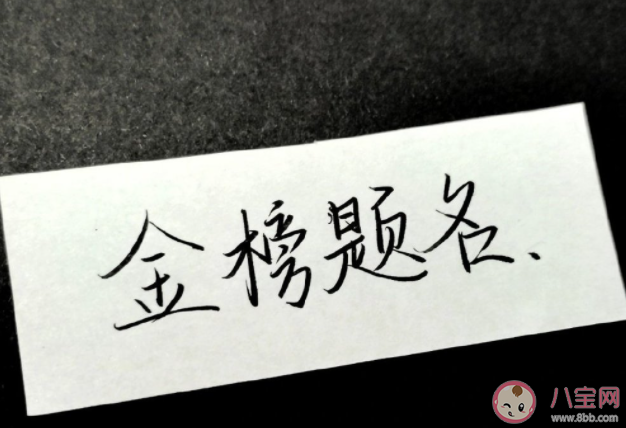 金榜题名.
八宝网
www.8bb.com